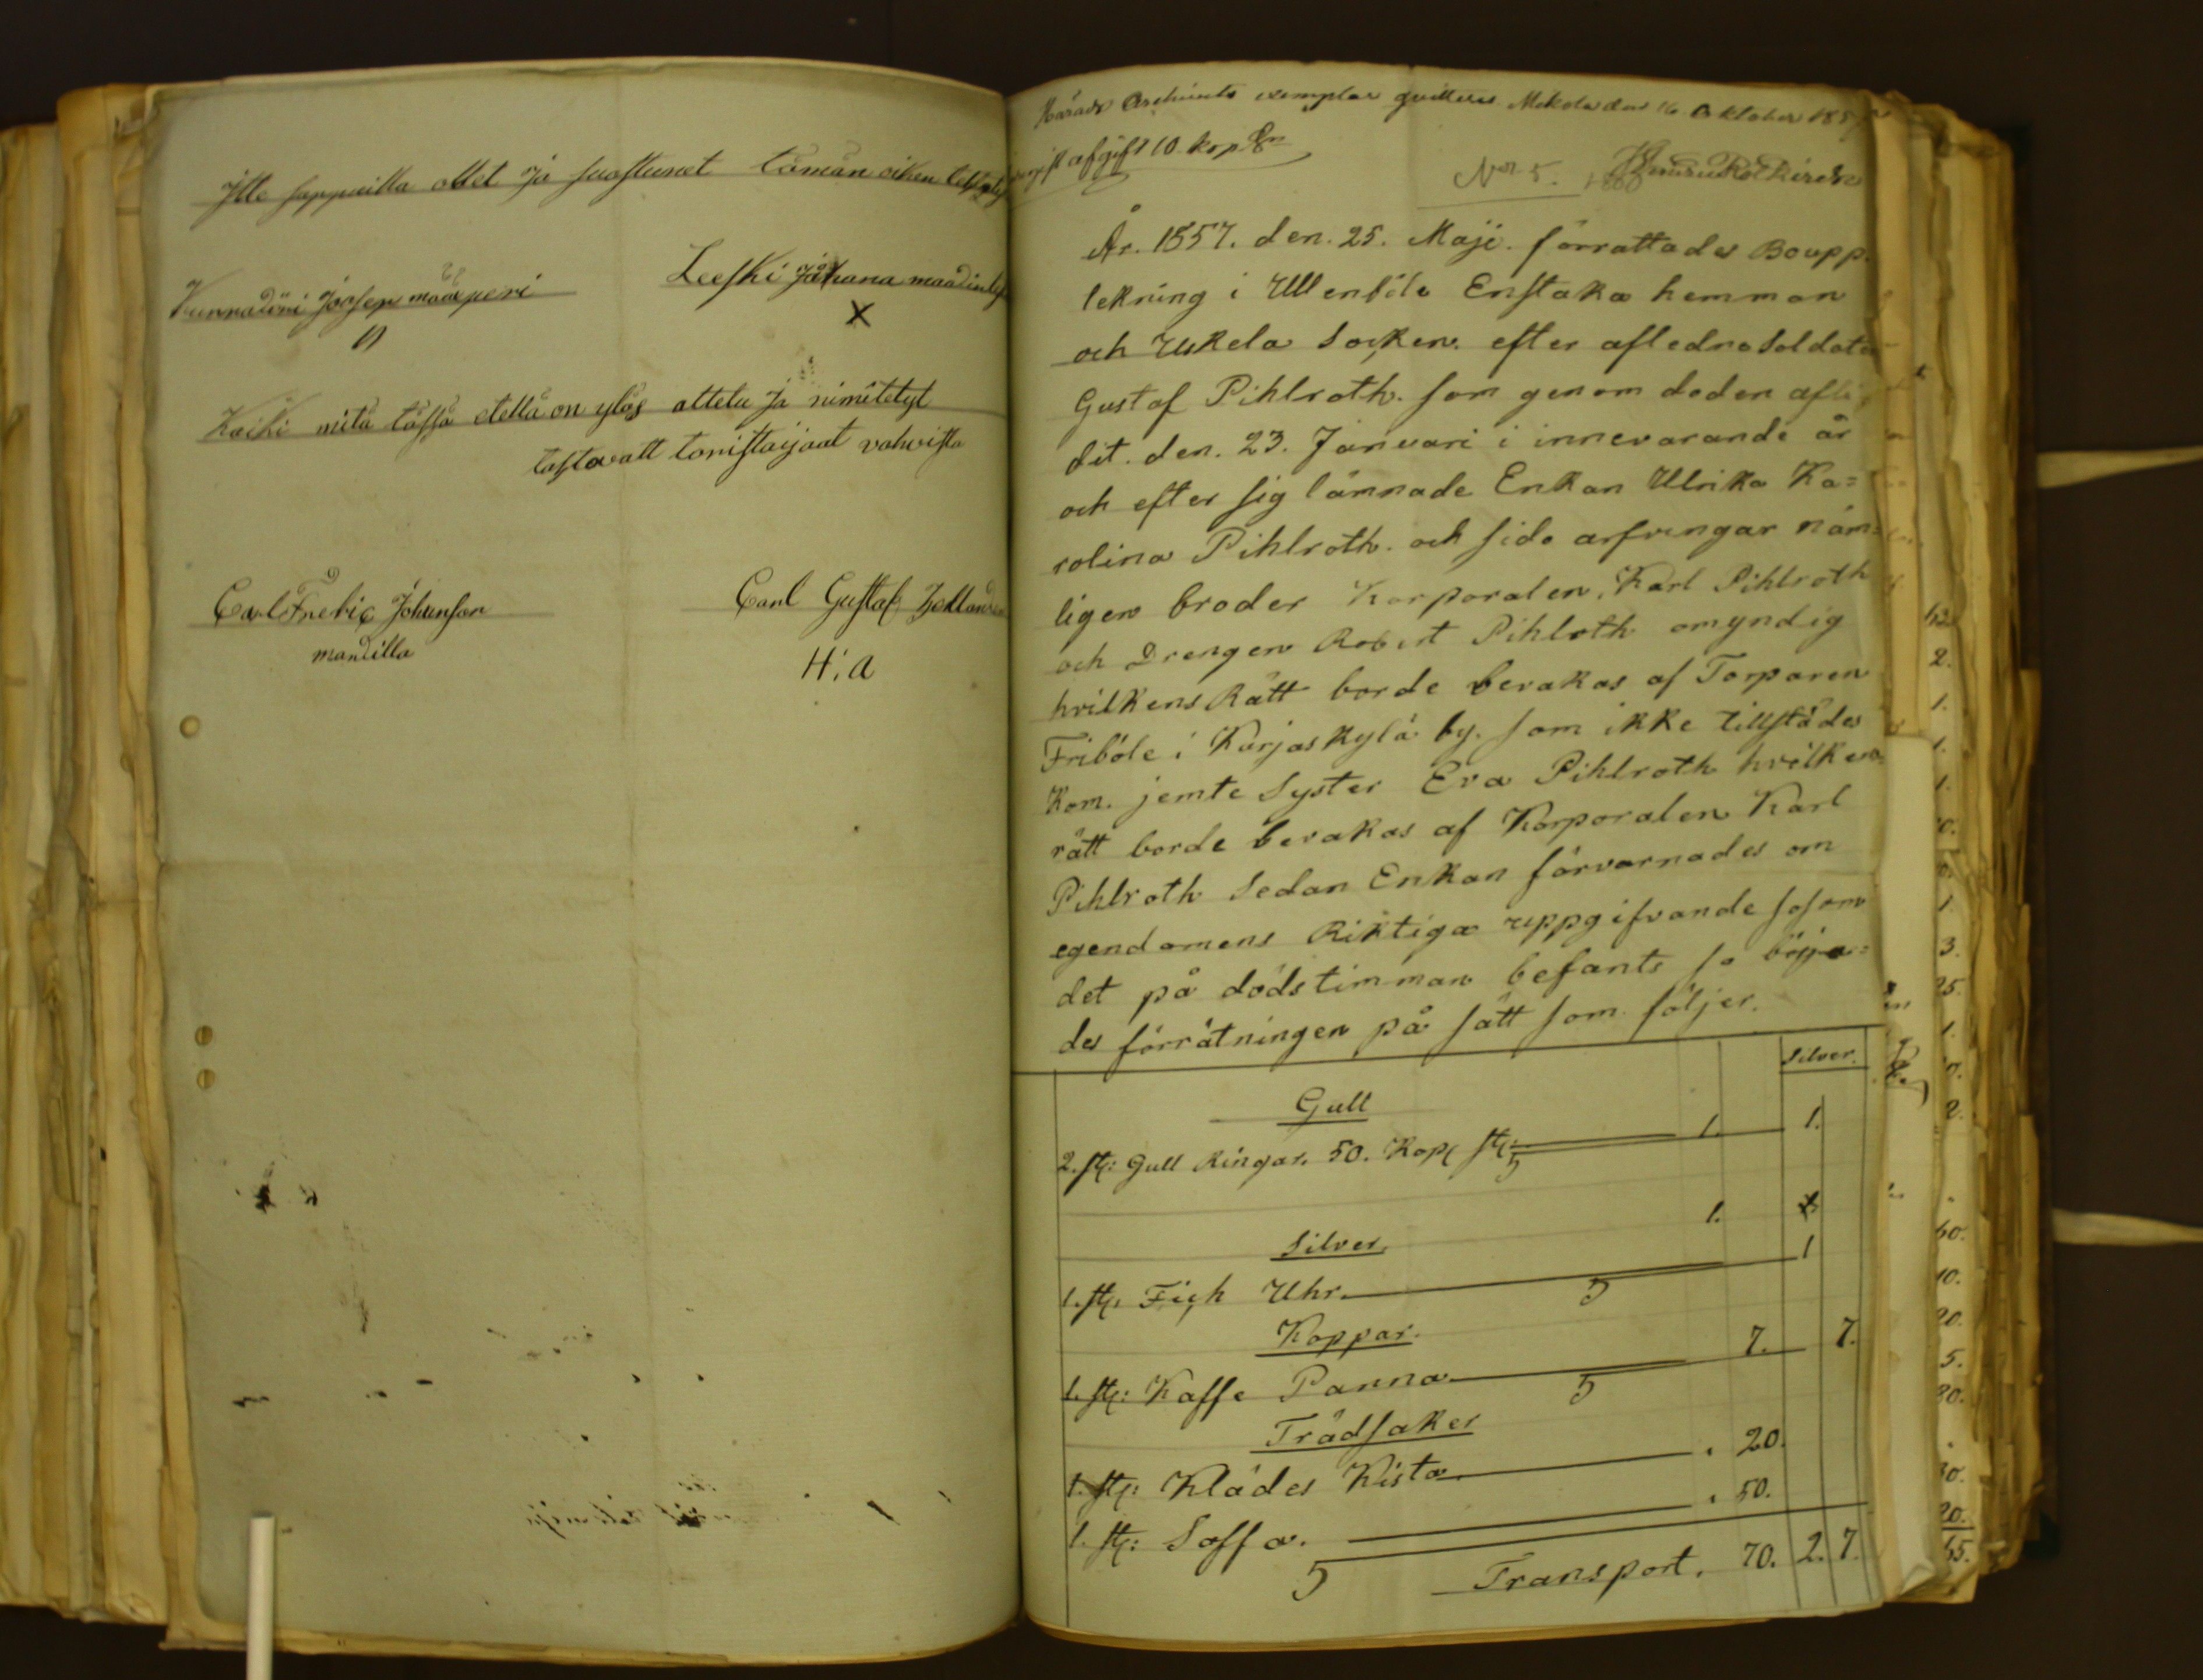 Jtte sappuilla ollet ja suostunet tämän oiken
Kunnadöni Joosep määperi
Leeski Johana maadin
X
Kaiki mitä tässä etellä on ylös ottetu ja nimitetyt
tostavatt toristaijaat vahvista
Carl Fredric Johanson
mandilla
Carl Gustaf
H: A
Härads Archivets exemplar qvitteras Mokola den 16 Oktober 185
afgift 10. kop Sr
No 5.
År. 1857. den. 25. Maji. förrattades Boupp.
tekning i Ullenböle Enstaka hemman
och Uskela Socken. efter aflednaSoldaten
Gustaf Pihlroth. som genom doden afli
dit. den. 23. Januari i innevarande år
och efter sig lämnade Enkan Ulrika Ka=
rolina Pihlroth. och sido arfvingar näm=
ligen broder Korporalen. Karl Pihlroth
och Drengen Robert Pihlroth omyndig
hvilkens Rätt borde bevakas af Torparen
Friböle i Karjaskylä by. som ikke tillstädes
Kom. jemte Syster Eva Pihlroth hvilkens
rätt borde bevakas af Korporalen Karl
Pihlroth Sedan Enkan förvarnades om
egendomens Riktiga uppgifvande sosom
det på dödstimman befants so börja=
des förrätningen på sätt som följer.
Silver.
Gull
2. st: Gull Ringar. 50. Kop st: 1. 1.
1. 1
Silver.
1. st: Fich Uhr. 1
Koppar.
1. st: Kaffe Panna 7. 7.
Trädsaker
1. st: Klädes Kista 20.
1. st: Soffa. 50.
Transport. 70. 2. 7.